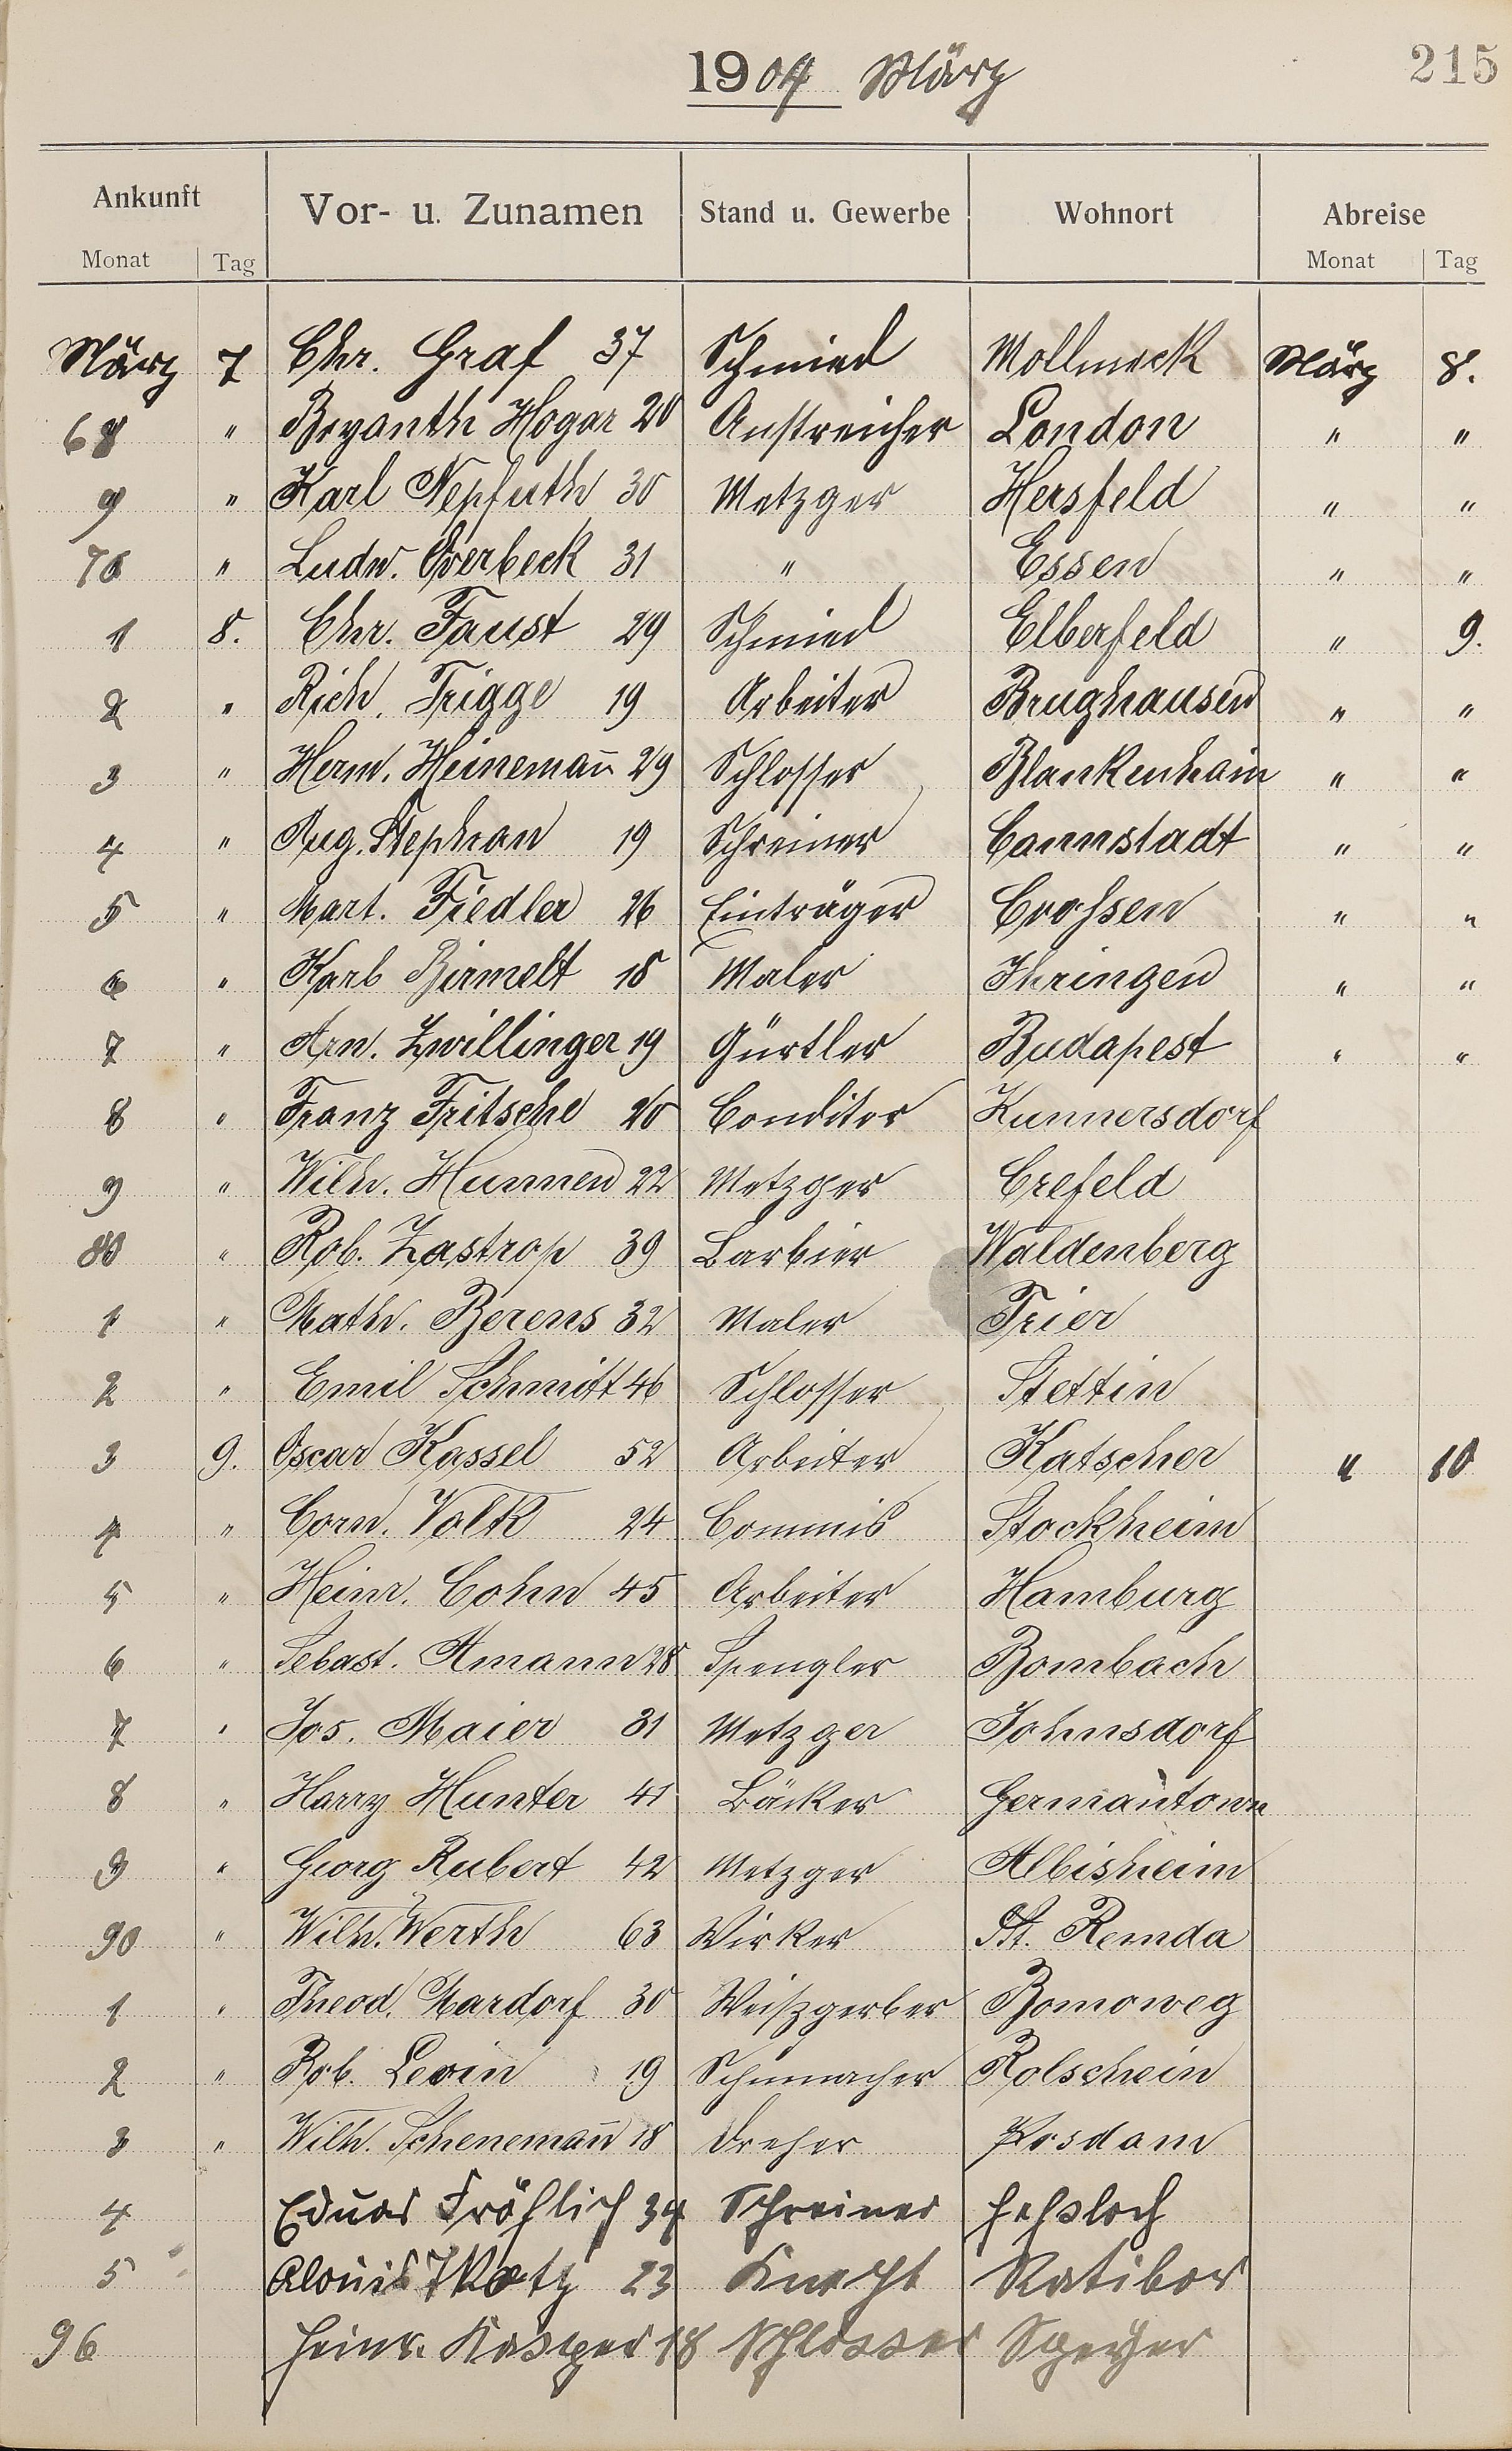 1904 März 215
Ankunft Vor- u. Zunamen Stand u. Gewerbe Wohnort Abreise
Monat Tag Monat Tag
März 7 Chr. Graf 37 Schmied Wollmeck März 8.
68 " Bryanth Hogar 20 Anstreicher London " "
9 " Karl Nepfuth 30 Metzger Hersfeld " "
70 " Ludw. Overbeck 31 " Essen " "
1 8. Chr. Faust 29 Schmied Elberfeld " 9.
2 " Rich. Trigge 19 Arbeiter Brughausen " "
3 " Herm. Heinemañ 29 Schlosser Blankenhain " "
4 " Aug. Stephan 19 Schreiner Cannstadt " "
5 " Mart. Fiedler 26 Einträger Crossen " "
6 " Karl Birmelt 18 Maler Ihringen " "
7 " Arn. Zwillinger 19 Gürtler Budapest " "
8 " Franz Fritsche 20 Conditor Kunnersdorf
9 " Wilh. Hunnen 22 Metzger Crefeld
80 " Rob. Zastrop 39 Barbier Waldenberg
1 " Math. Berens 32 Maler Trier
2 " Emil Schmitt 46 Schlosser Stettin
3 9. Oscar Kassel 52 Arbeiter Katscher " 10
4 " Corn. Volk 24 Commis Stockheim
5 " Heinr. Cohn 45 Arbeiter Hamburg
6 " Sebast. Amann 28 Spengler Bombach
7 " Jos. Maier 31 Metzger Johnsdorf
8 " Harry Hunter 41 Bäcker Germantown
9 " Georg Rubert 42 Metzger Albisheim
90 " Wilh. Werth 63 Wirker St. Remda
1 " Theod. Mardorf 30 Weiszgerber Bomoweg
2 " Rob. Levin 19 Schumacher Rolschein
3 " Wilh. Schenemañ 18 Dreher Posdam
4 Eduar Fröhlich 34 Schreiner Hessloch
5 Alouis Kotz 23 Knecht Ratibor
96 Heinr. Kasper 18 Schlosser Speyer